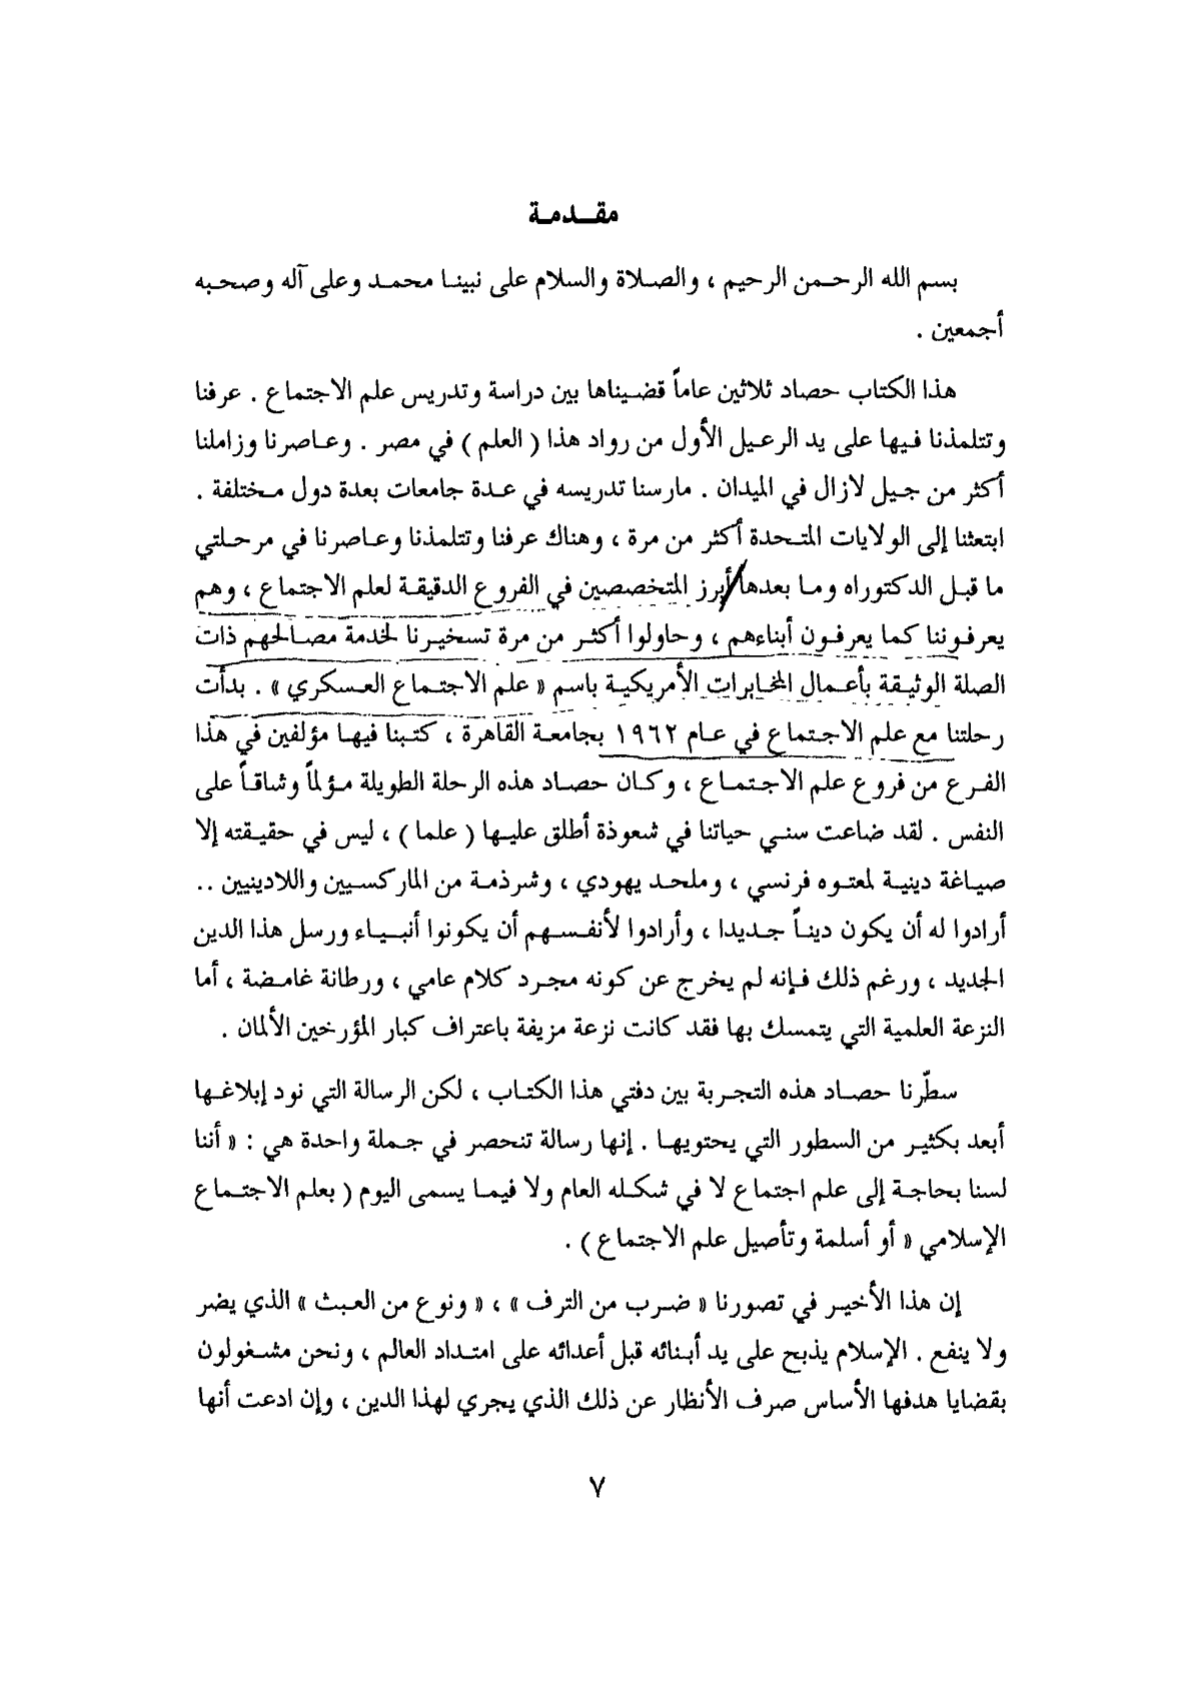 مقدمة
بسم الله الرحمن الرحيم ، والصلاة والسلام على نبينا محمد وعلى آله وصحبه
أجمعين .
هذا الكتاب حصاد ثلاثين عاماً قضيناها بين دراسة وتدريس علم الاجتماع . عرفنا
وتتلمذنا فيها على يد الرعيل الأول من رواد هذا ( العلم ) في مصر . وعاصرنا وزاملنا
أكثر من جيل لازال في الميدان . مارسنا تدريسه في عدة جامعات بعدة دول مختلفة .
ابتعثنا إلى الولايات المتحدة أكثر من مرة ، وهناك عرفنا وتتلمذنا وعاصرنا في مرحلتي
ما قبل الدكتوراه وما بعدها أبرز المتخصصين في الفروع الدقيقة لعلم الاجتماع ، وهم
يعرفوننا كما يعرفون أبناءهم ، وحاولوا أكثر من مرة تسخيرنا لخدمة مصالحهم ذات
الصلة الوثيقة بأعمال المخابرات الأمريكية باسم « علم الاجتماع العسكري » . بدأت
رحلتنا مع علم الاجتماع في عام ١٩٦٢ بجامعة القاهرة ، كتبنا فيها مؤلفين في هذا
الفرع من فروع علم الاجتماع ، وكان حصاد هذه الرحلة الطويلة مؤلماً وشاقاً على
النفس . لقد ضاعت سني حياتنا في شعوذة أطلق عليها ( علما ) ، ليس في حقيقته إلا
صياغة دينية لمعتوه فرنسي ، وملحد يهودي ، وشرذمة من الماركسيين واللادينيين ..
أرادوا له أن يكون ديناً جديدا ، وأرادوا لأنفسهم أن يكونوا أنبياء ورسل هذا الدين
الجديد ، ورغم ذلك فإنه لم يخرج عن كونه مجرد كلام عامي ، ورطانة غامضة ، أما
النزعة العلمية التي يتمسك بها فقد كانت نزعة مزيفة باعتراف كبار المؤرخين الألمان .
سطّرنا حصاد هذه التجربة بين دفتي هذا الكتاب ، لكن الرسالة التي نود إبلاغها
أبعد بكثير من السطور التي يحتويها . إنها رسالة تنحصر في جملة واحدة هي : « أننا
لسنا بحاجة إلى علم اجتماع لا في شكله العام ولا فيما يسمى اليوم ( بعلم الاجتماع
الإسلامي « أو أسلمة وتأصيل علم الاجتماع ) .
إن هذا الأخير في تصورنا « ضرب من الترف » ، « ونوع من العبث » الذي يضر
ولا ينفع . الإسلام يذبح على يد أبنائه قبل أعدائه على امتداد العالم ، ونحن مشغولون
بقضايا هدفها الأساس صرف الأنظار عن ذلك الذي يجري لهذا الدين ، وإن ادعت أنها
٧